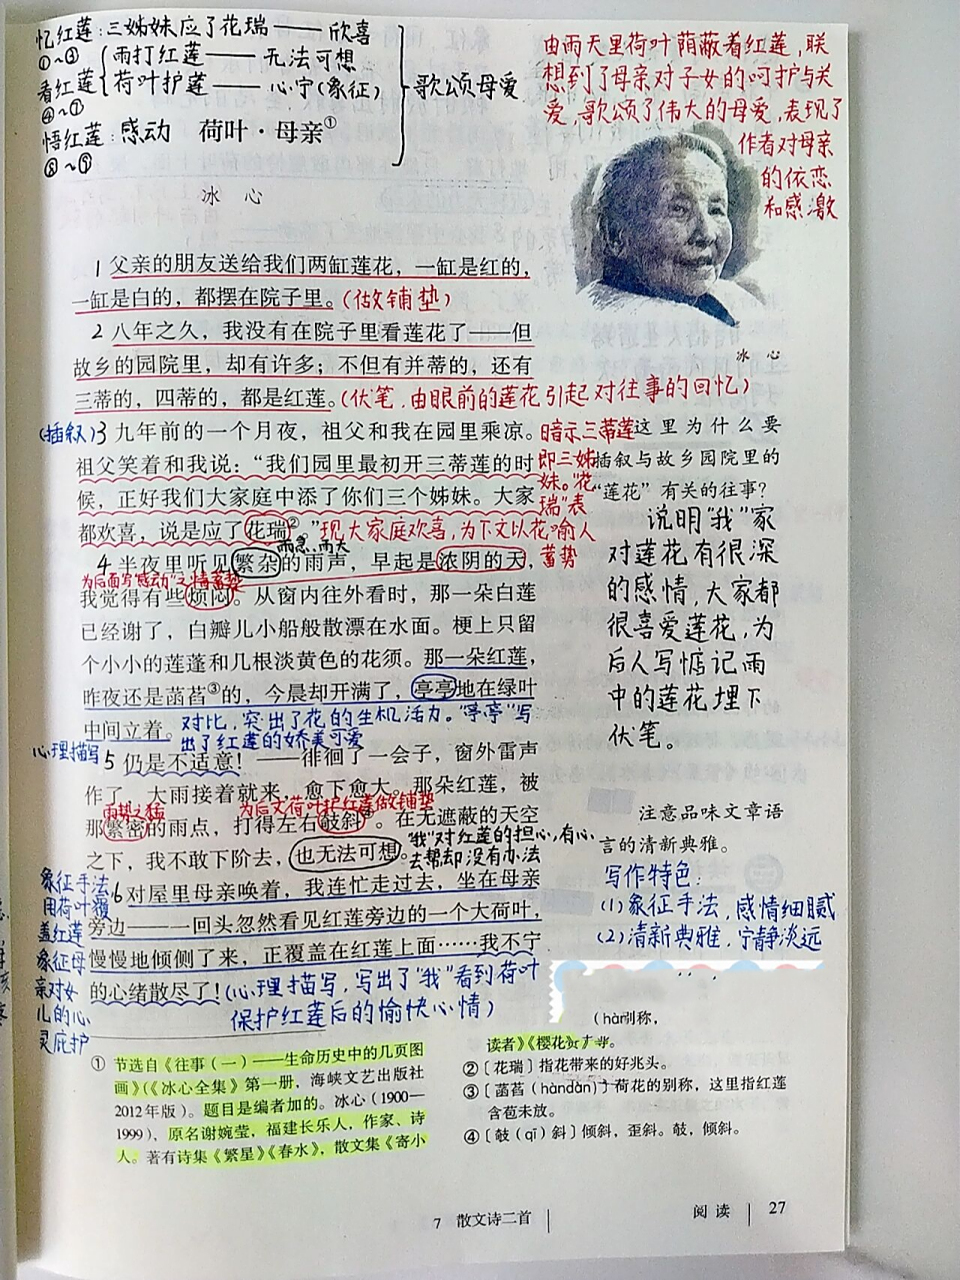 忆红莲:三姊妹应了花瑞——欣喜
①~③
雨打红莲——无法可想
看红莲
荷叶护莲——心宁(象征)
④~⑦
歌颂母爱
悟红莲:感动
荷叶·母亲①
冰 心
由雨天里荷叶荫蔽着红莲,联
想到了母亲对子女的呵护与关
爱,歌颂了伟大的母爱,表现了
作者对母亲
的依恋
和感激
冰 心
1 父亲的朋友送给我们两缸莲花,一缸是红的,
一缸是白的,都摆在院子里。(做铺垫)
2 八年之久,我没有在院子里看莲花了——但
故乡的园院里,却有许多;不但有并蒂的,还有
三蒂的,四蒂的,都是红莲。(伏笔,由眼前的莲花引起对往事的回忆)
(插叙)3 九年前的一个月夜,祖父和我在园里乘凉。
祖父笑着和我说:“我们园里最初开三蒂莲的时
候,正好我们大家庭中添了你们三个姊妹。大家
都欢喜,说是应了花瑞②。”
暗示三蒂莲
即三姊
妹。“花
瑞”表
现大家庭欢喜,为下文以花喻人
蓄势
这里为什么要
插叙与故乡园院里的
“莲花”有关的往事?
说明“我”家
对莲花有很深
的感情,大家都
很喜爱莲花,为
后人写惦记雨
中的莲花埋下
伏笔。
雨急、雨大
4 半夜里听见繁杂的雨声,早起是浓阴的天,
为后面写“感动”之情蓄势
我觉得有些烦闷。从窗内往外看时,那一朵白莲
已经谢了,白瓣儿小船般散漂在水面。梗上只留
个小小的莲蓬和几根淡黄色的花须。那一朵红莲,
昨夜还是菡萏③的,今晨却开满了,亭亭地在绿叶
中间立着。对比,突出了花的生机活力。“亭亭”写
出了红莲的娇美可爱
心理描写
5 仍是不适意!——徘徊了一会子,窗外雷声
作了,大雨接着就来,愈下愈大。那朵红莲,被
雨势之猛
为后文荷叶护红莲做铺垫
那繁密的雨点,打得左右攲斜④。在无遮蔽的天空
之下,我不敢下阶去,也无法可想。
“我”对红莲的担心,有心
去帮却没有办法
注意品味文章语
言的清新典雅。
写作特色:
(1)象征手法,感情细腻
(2)清新典雅,宁静淡远
象征手法
用荷叶覆
盖红莲
象征母
亲对女
儿的心
灵庇护
6 对屋里母亲唤着,我连忙走过去,坐在母亲
旁边——一回头忽然看见红莲旁边的一个大荷叶,
慢慢地倾侧了来,正覆盖在红莲上面……我不宁
的心绪散尽了!(心理描写,写出了“我”看到荷叶
保护红莲后的愉快心情)
① 节选自《往事(一)——生命历史中的几页图
画》(《冰心全集》第一册,海峡文艺出版社
2012年版)。题目是编者加的。冰心(1900—
1999),原名谢婉莹,福建长乐人,作家、诗
人。著有诗集《繁星》《春水》,散文集《寄小
(hàn
别称,
读者》《樱花
② 〔花瑞〕指花带来的好兆头。
③ 〔菡萏(hàndàn)〕荷花的别称,这里指红莲
含苞未放。
④ 〔攲(qī)斜〕倾斜,歪斜。攲,倾斜。
7 散文诗二首
阅读 27